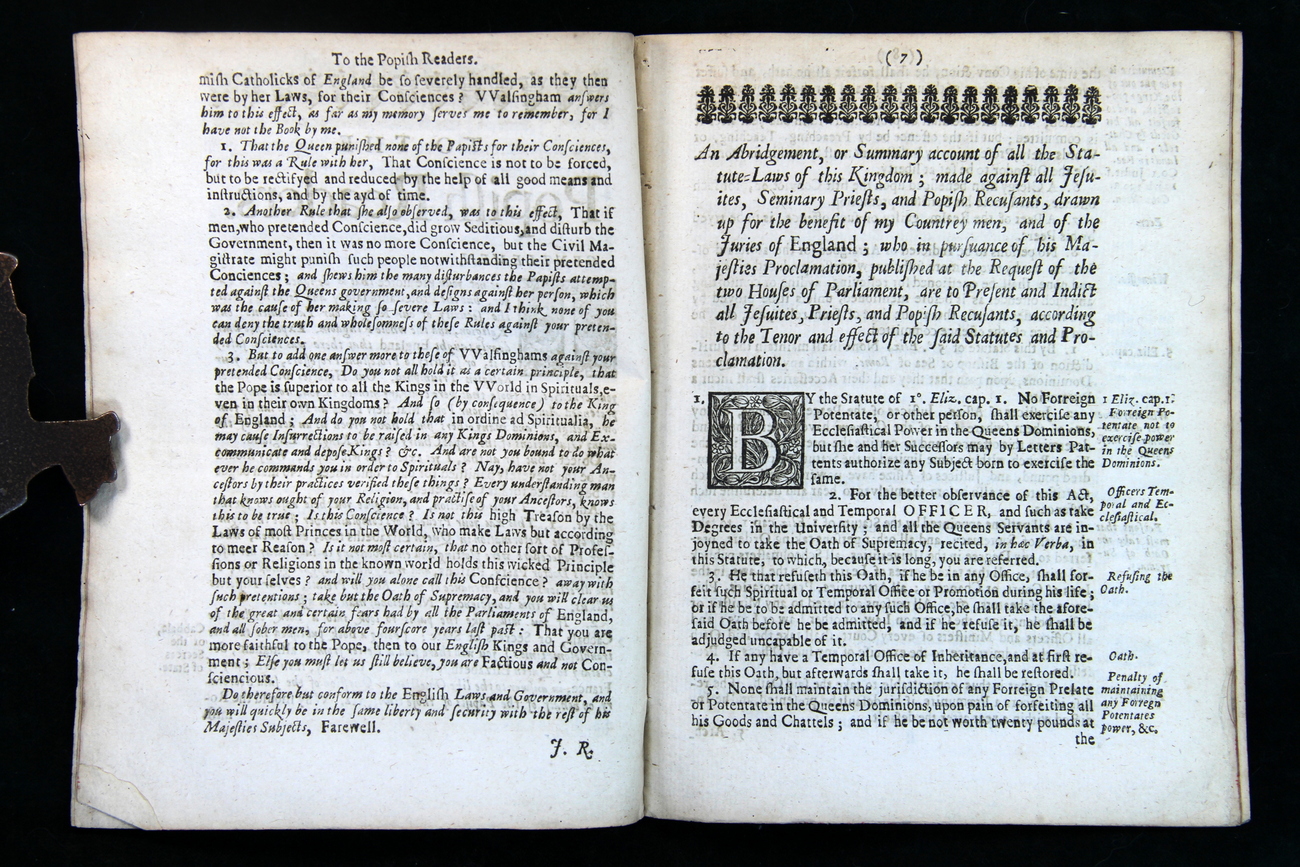 To the Popiſh Readers.
miſh Catholicks of England be ſo ſeverely handled, as they then
were by her Laws, for their Conſciences? VValſingham anſwers
him to this effect, as far as my memory ſerves me to remember, for I
have not the Book by me.
1. That the Queen puniſhed none of the Papiſts for their Conſciences,
for this was a Rule with her, That Conſcience is not to be forced,
but to be rectifyed and reduced by the help of all good means and
inſtructions, and by the ayd of time.
2. Another Rule that ſhe alſo obſerved, was to this effect, That if
men, who pretended Conſcience, did grow Seditious, and diſturb the
Government, then it was no more Conſcience, but the Civil Ma-
giſtrate might puniſh ſuch people notwithſtanding their pretended
Conciences; and ſhews him the many diſturbances the Papiſts attemp-
ted againſt the Queens government, and deſigns againſt her perſon, which
was the cauſe of her making ſo ſevere Laws: and I think none of you
can deny the truth and wholeſomneſs of theſe Rules againſt your preten-
ded Conſciences.
3. But to add one anſwer more to theſe of VValſinghams againſt your
pretended Conſcience, Do you not all hold it as a certain principle, that
the Pope is ſuperior to all the Kings in the VVorld in Spirituals, e-
ven in their own Kingdoms? And ſo (by conſequence) to the King
of England; And do you not hold that in ordine ad Spiritualia, he
may cauſe Inſurrections to be raiſed in any Kings Dominions, and Ex-
communicate and depoſe Kings? &c. And are not you bound to do what
ever he commands you in order to Spirituals? Nay, have not your An-
ceſtors by their practices verified theſe things? Every underſtanding man
that knows ought of your Religion, and practiſe of your Anceſtors, knows
this to be true; Is this Conſcience? Is not this high Treaſon by the
Laws of moſt Princes in the World, who make Laws but according
to meet Reaſon? Is it not moſt certain, that no other ſort of Profeſ-
ſions or Religions in the known world holds this wicked Principle
but your ſelves? and will you alone call this Conſcience? away with
ſuch pretentions; take but the Oath of Supremacy, and you will clear us
of the great and certain fears had by all the Parliaments of England,
and all ſober men, for above fourſcore years laſt paſt: That you are
more faithful to the Pope, then to our Engliſh Kings and Govern-
ment; Elſe you muſt let us ſtill believe, you are Factious and not Con-
ſciencious.
Do therefore but conform to the Engliſh Laws and Government, and
you will quickly be in the ſame liberty and ſecurity with the reſt of his
Majeſties Subjects, Farewell.
J. R.
(7)
An Abridgement, or Summary account of all the Sta-
tute-Laws of this Kingdom; made againſt all Jeſu-
ites, Seminary Prieſts, and Popiſh Recuſants, drawn
up for the benefit of my Countrey men, and of the
Juries of England; who in purſuance of his Ma-
jeſties Proclamation, publiſhed at the Requeſt of the
two Houſes of Parliament, are to Preſent and Indict
all Jeſuites, Prieſts, and Popiſh Recuſants, according
to the Tenor and effect of the ſaid Statutes and Pro-
clamation.
1. BY the Statute of 1°. Eliz. cap. 1. No Forreign
Potentate, or other perſon, ſhall exerciſe any
Eccleſiaſtical Power in the Queens Dominions,
but ſhe and her Succeſſors may by Letters Pat-
tents authorize any Subject born to exerciſe the
ſame.
1 Eliz. cap. 1.
Forreign Po-
tentate not to
exerciſe power
in the Queens
Dominions.
2. For the better obſervance of this Act,
every Eccleſiaſtical and Temporal OFFICER, and ſuch as take
Degrees in the Univerſity; and all the Queens Servants are in-
joyned to take the Oath of Supremacy, recited, in hæc Verba, in
this Statute, to which, becauſe it is long, you are referred.
Officers Tem-
poral and Ec-
cleſiaſtical.
3. He that refuſeth this Oath, if he be in any Office, ſhall for-
feit ſuch Spiritual or Temporal Office or Promotion during his life;
or if he be to be admitted to any ſuch Office, he ſhall take the afore-
ſaid Oath before he be admitted, and if he refuſe it, he ſhall be
adjudged uncapable of it.
Refuſing the
Oath.
4. If any have a Temporal Office of Inheritance, and at firſt re-
fuſe this Oath, but afterwards ſhall take it, he ſhall be reſtored.
Oath.
5. None ſhall maintain the jurisdiction of any Forreign Prelate
or Potentate in the Queens Dominions, upon pain of forfeiting all
his Goods and Chattels; and if he be not worth twenty pounds at
the
Penalty of
maintaining
any Forreign
Potentates
power, &c.